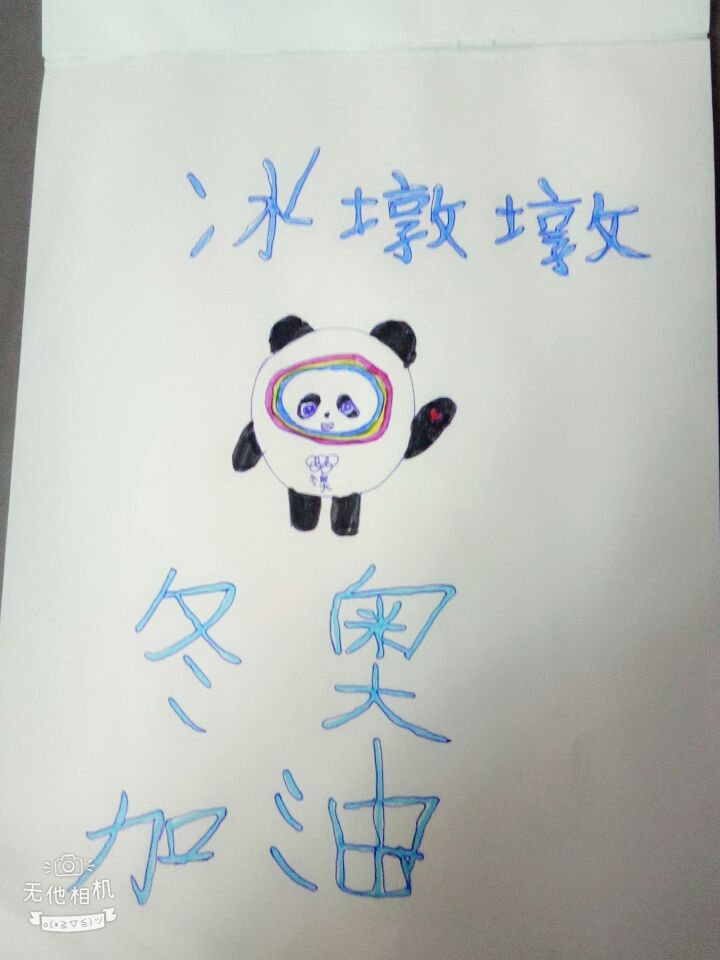 冰墩墩
冬奥
冬奥
加油
无他相机
o(≧▽≦)ツ